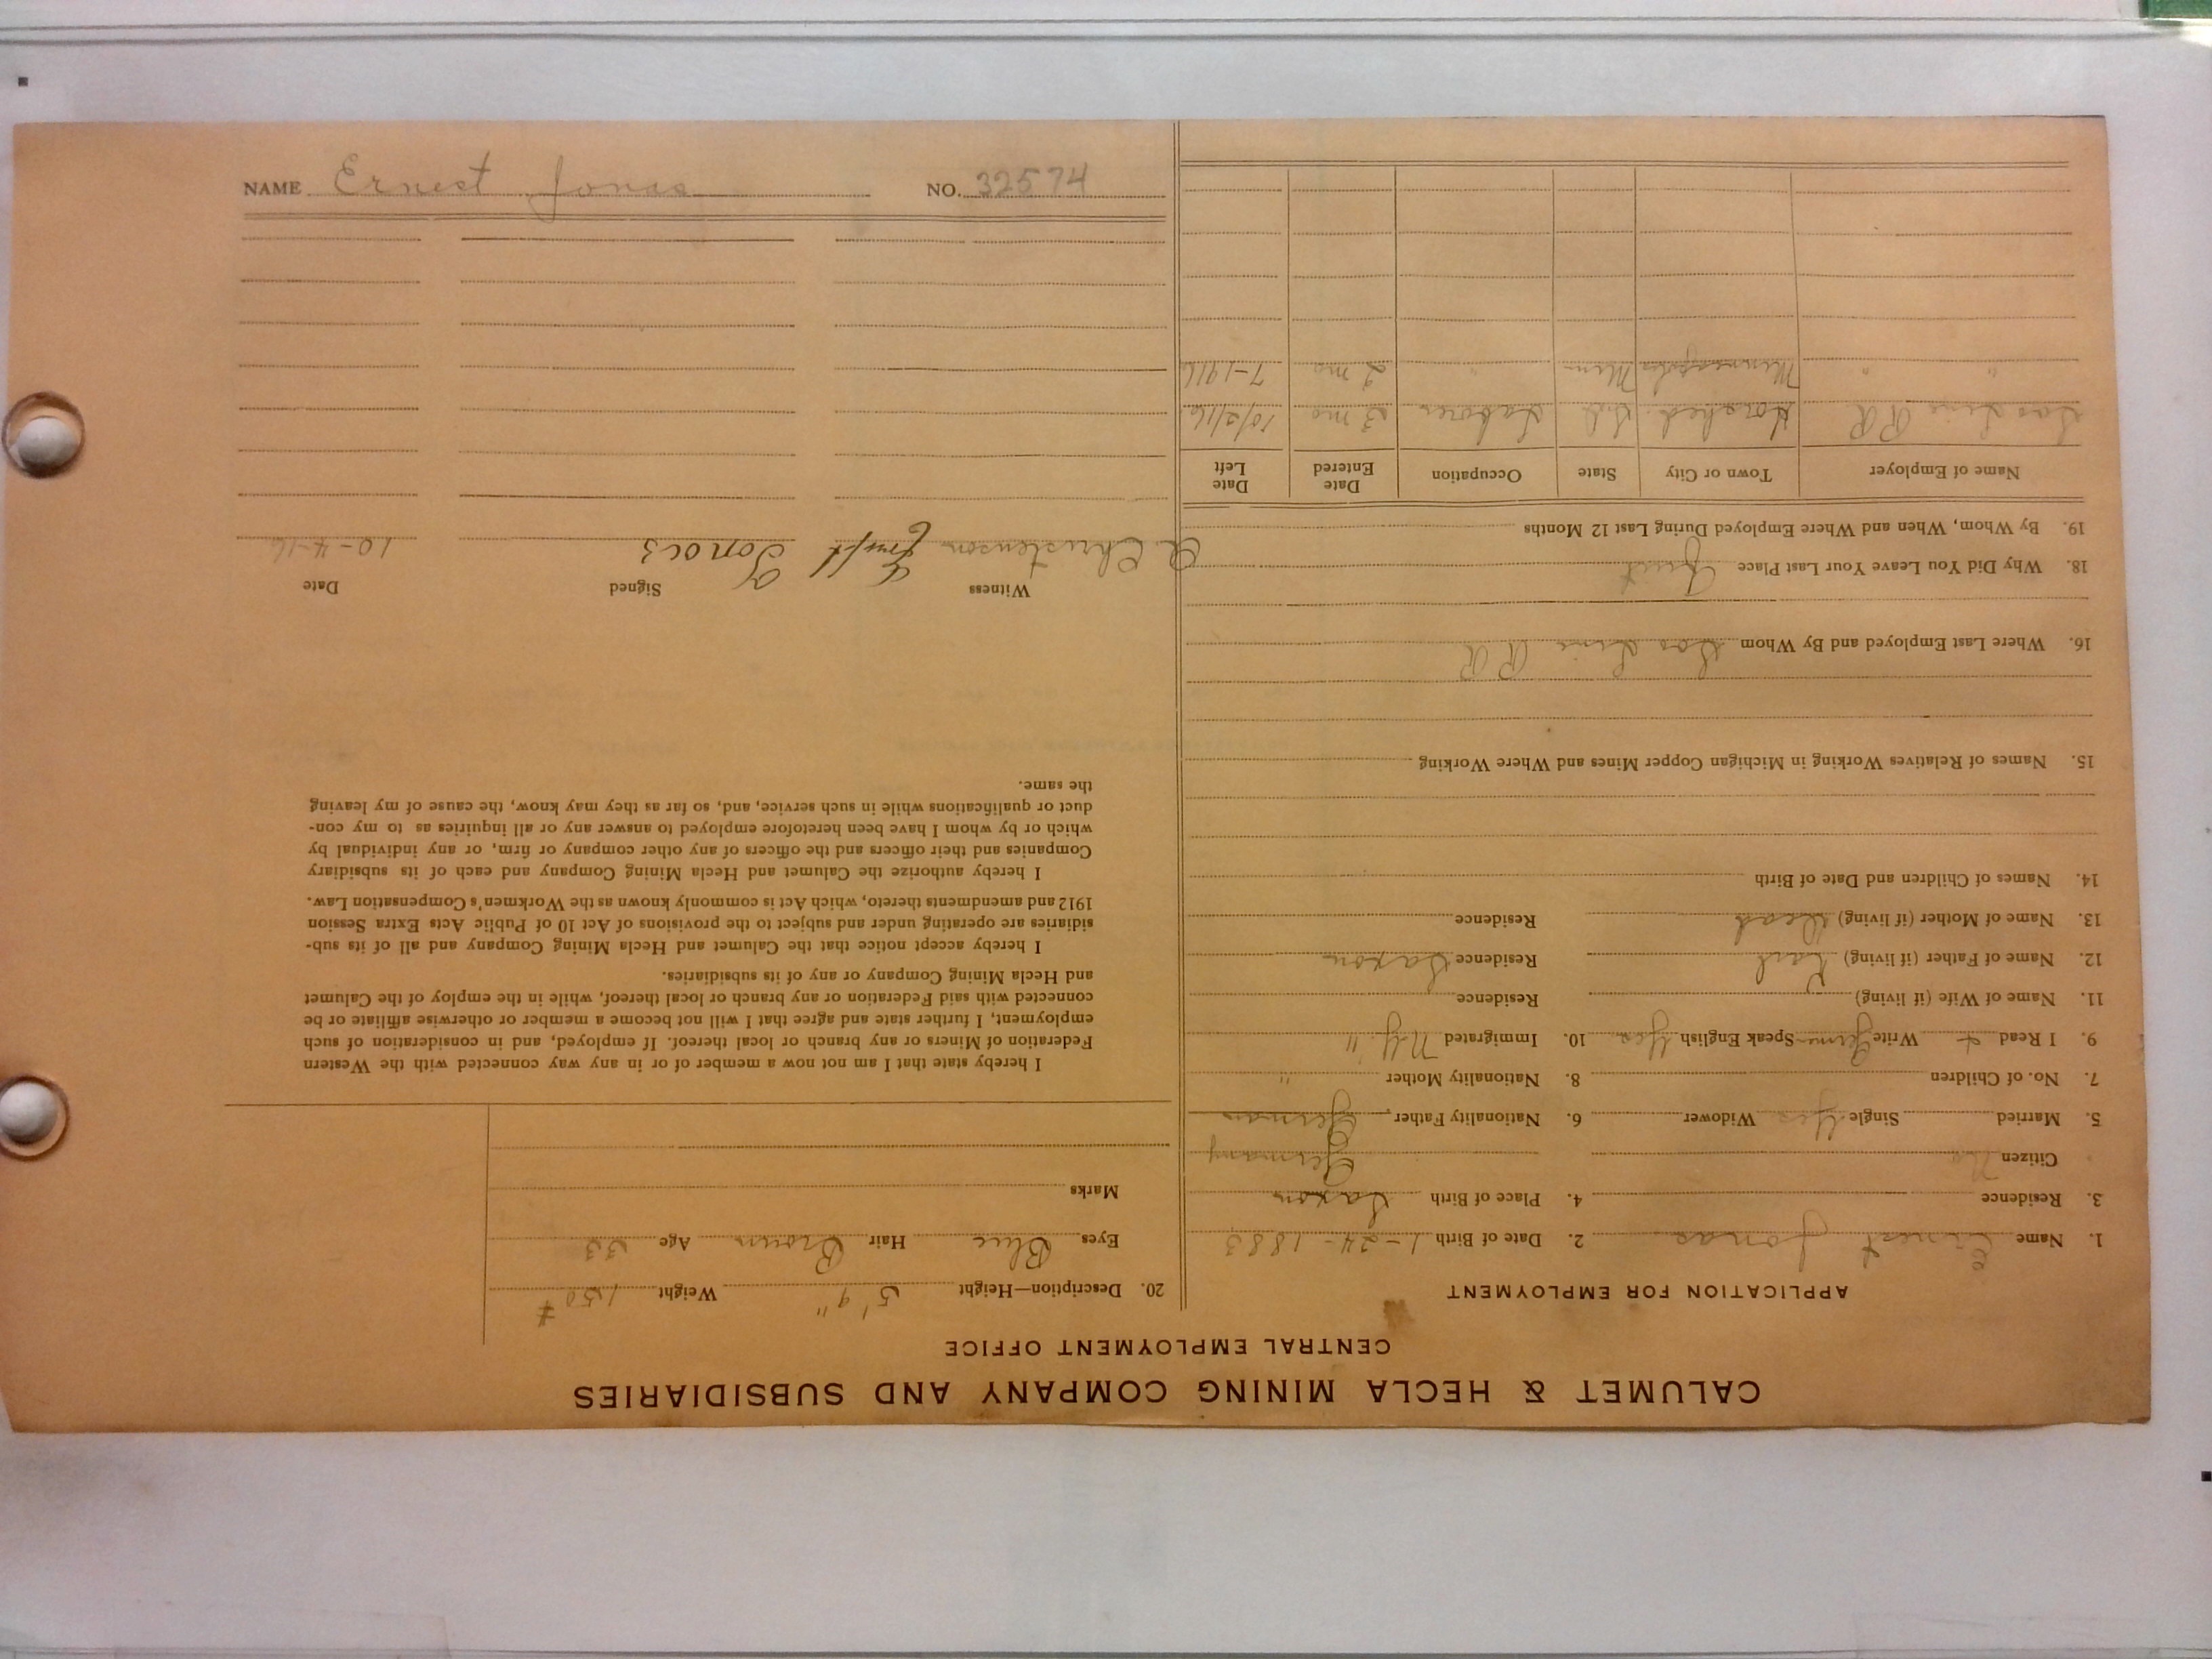 CALUMET & HECLA MINING COMPANY AND SUBSIDIARIES
CENTRAL EMPLOYMENT OFFICE
APPLICATION FOR EMPLOYMENT
1. Name Ernest Jonas 2. Date of Birth 1-24-1883
3. Residence 4. Place of Birth Saxon
Citizen No Germany
5. Married Single Yes Widower 6. Nationality Father German
7. No. of Children 8. Nationality Mother "
9. I Read + Write Germ Speak English Yes 10. Immigrated N.Y.
11. Name of Wife (if living) Residence
12. Name of Father (if living) Karl Residence Saxon
13. Name of Mother (if living) Dead Residence
14. Names of Children and Date of Birth
15. Names of Relatives Working in Michigan Copper Mines and Where Working
16. Where Last Employed and By Whom Soo Line RR
18. Why Did You Leave Your Last Place Quit
19. By Whom, When and Where Employed During Last 12 Months
Name of Employer Town or City State Occupation Date Entered Date Left
Soo Line RR Laborer 3 mo 10/2/16
" " Minneapolis Minn " 2 mo 7-1916
20. Description—Height 5' 9" Weight 150 #
Eyes Blue Hair Brown Age 33
Marks
I hereby state that I am not now a member of or in any way connected with the Western
Federation of Miners or any branch or local thereof. If employed, and in consideration of such
employment, I further state and agree that I will not become a member or otherwise affiliate or be
connected with said Federation or any branch or local thereof, while in the employ of the Calumet
and Hecla Mining Company or any of its subsidiaries.
I hereby accept notice that the Calumet and Hecla Mining Company and all of its sub-
sidiaries are operating under and subject to the provisions of Act 10 of Public Acts Extra Session
1912 and amendments thereto, which Act is commonly known as the Workmen's Compensation Law.
I hereby authorize the Calumet and Hecla Mining Company and each of its subsidiary
Companies and their officers and the officers of any other company or firm, or any individual by
which or by whom I have been heretofore employed to answer any or all inquiries as to my con-
duct or qualifications while in such service, and, so far as they may know, the cause of my leaving
the same.
Witness Signed Date
A. Christenson Ernst Jonas 10-4-16
NAME Ernest Jonas NO. 32574